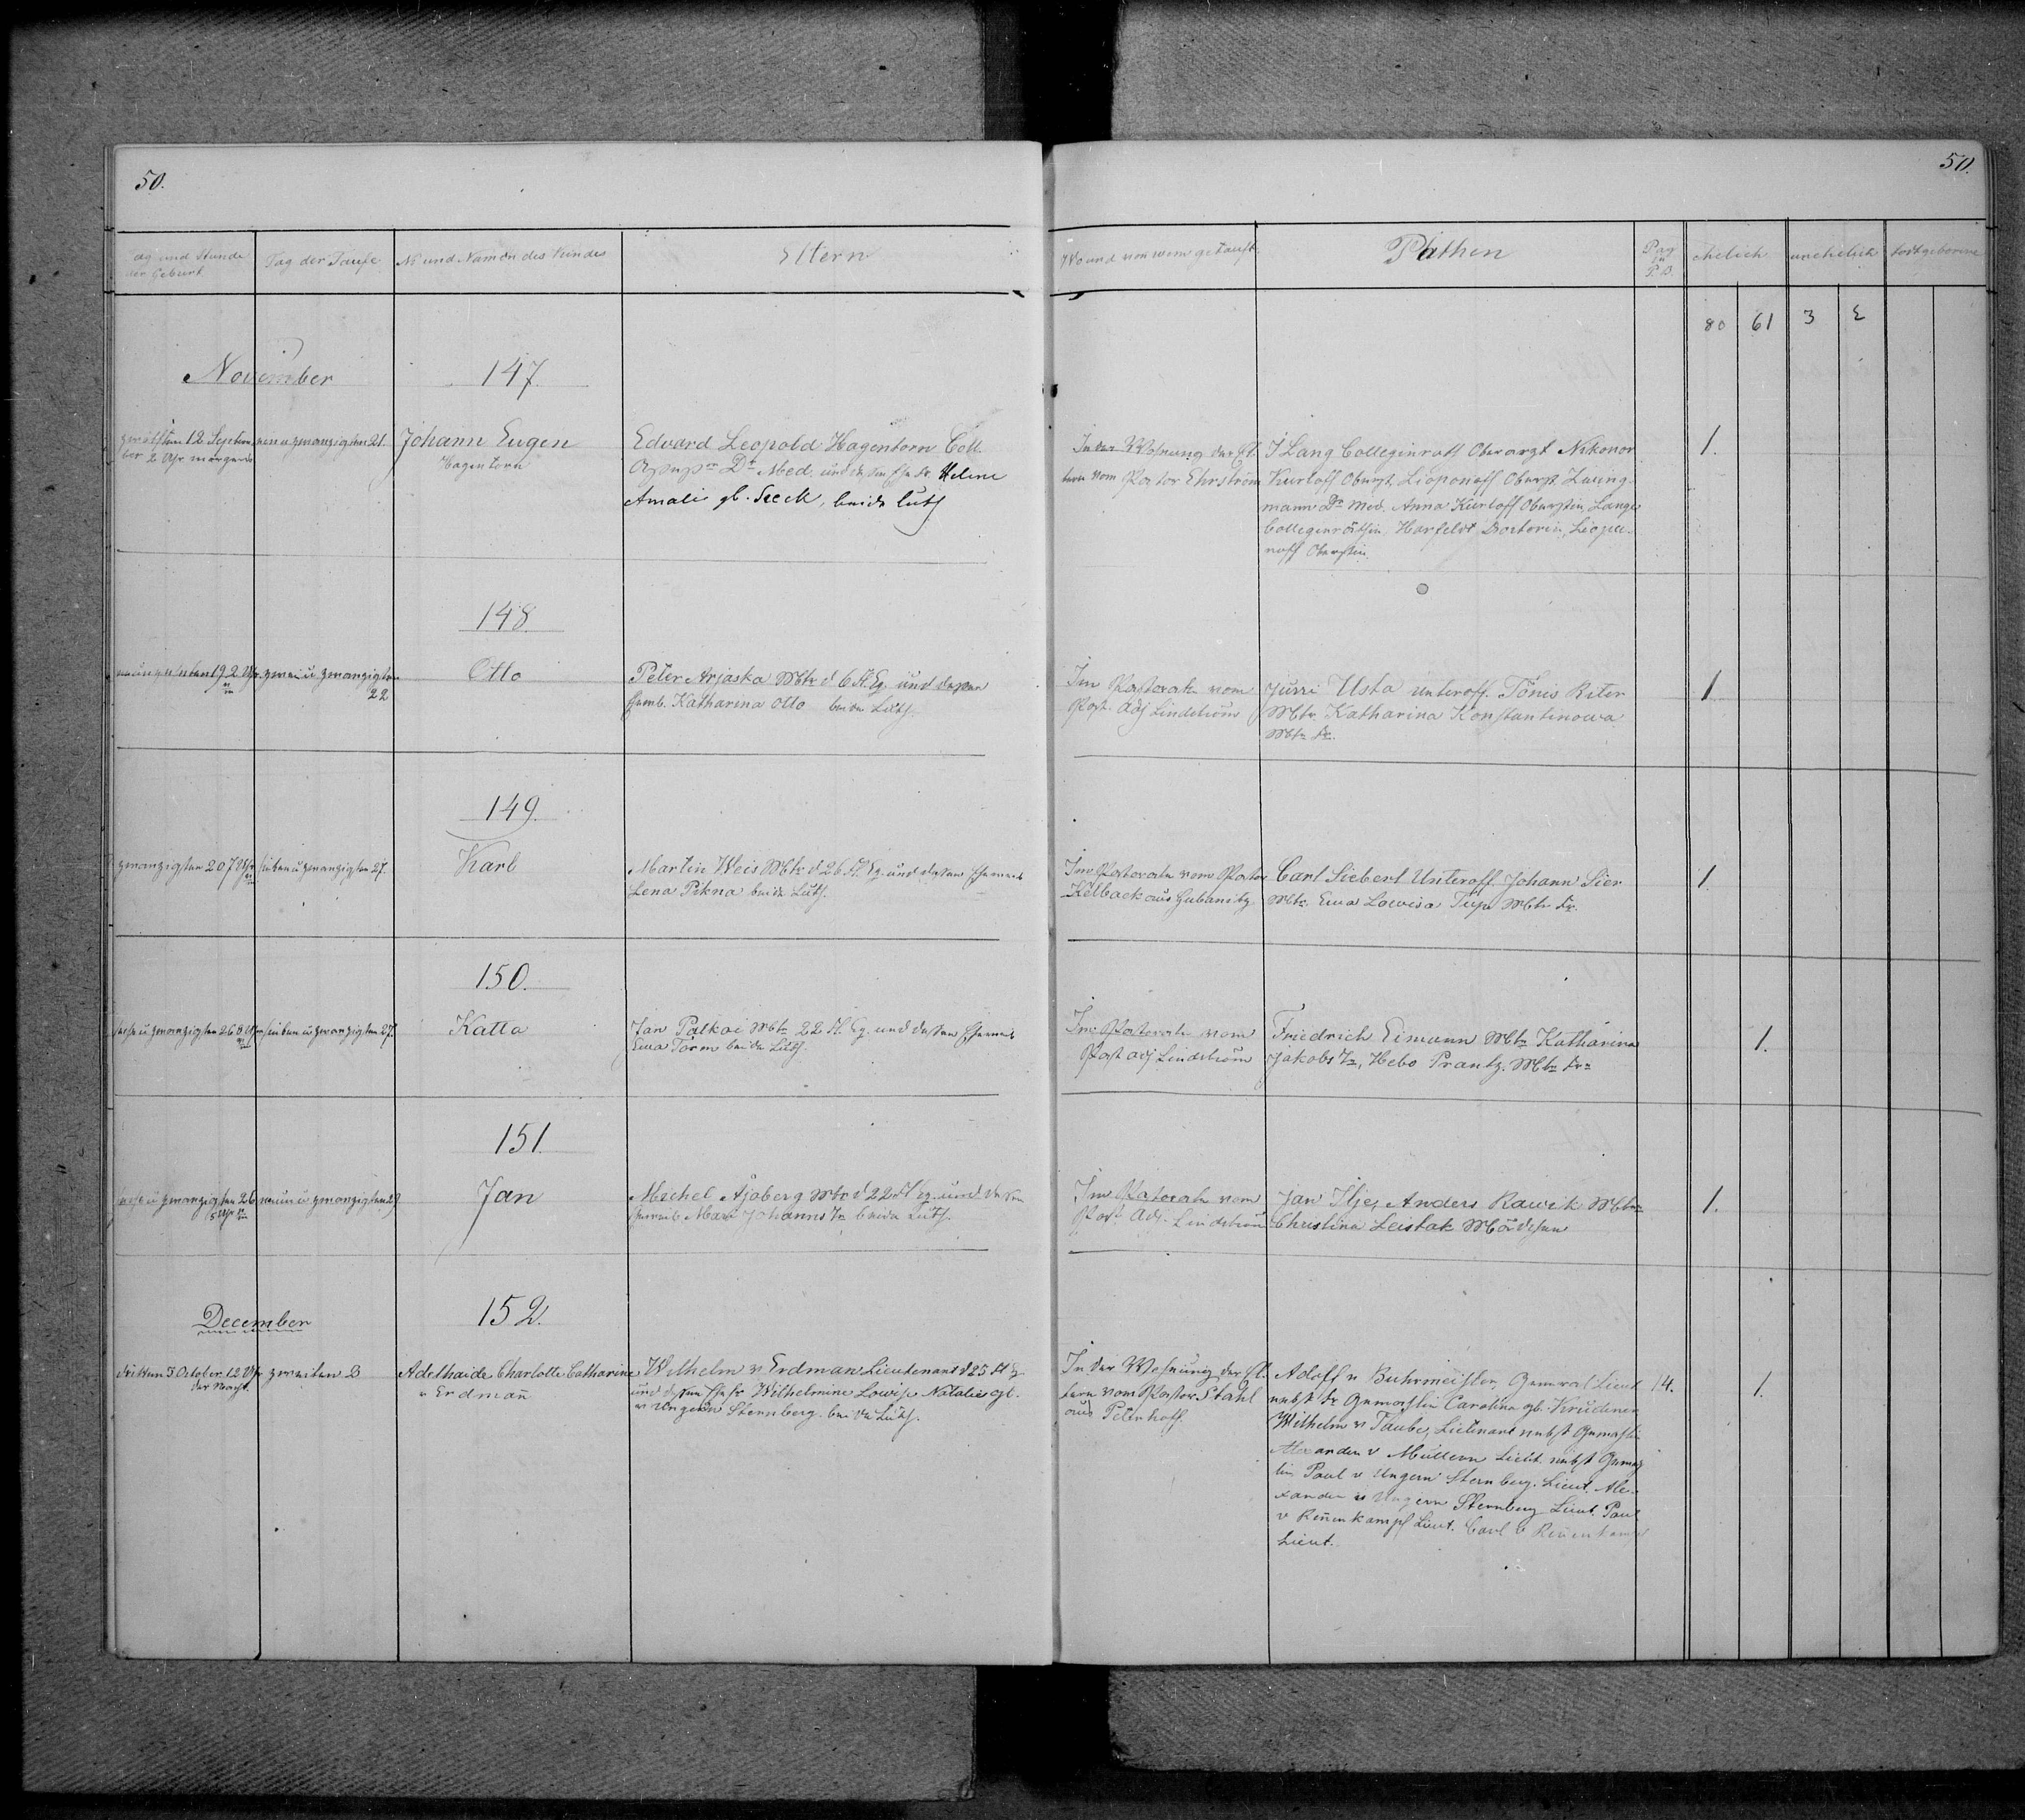 50.
50.
ag und Stunde
der Geburt
Tag der Taufe
No und Namen des Kindes
Eltern
Wo und von wem getauft
Pathen
Pag
in
P. B.
ehelich
unehelich
todtgeborene
80 61 3 3
November
147.
zwölften 12 Septem
ber 2 Uhr morgends
ein u zwanzigsten 21.
Johann Eugen
Hagentorn
Edvard Leopold Hagentorn Coll.
Dr Med. und dessen Ehefr Helene
Amalie gb. Seeck, beide luth
In der Wohnung der El
tern vom Pastor Ehrström
J Lang Collegienrath Oberarzt Nikonor
Kurloff Oberst, Lioponoff Oberst
mann Dr Med. Anna Kurloff Oberstin, Lange
Collegenräthin, Harfeldt Doctorin,
noff Oberstin.
1.
148.
neunzehnten 19 2 Uhr
zwei u zwanzigsten
22
Otto
Peter Arjaska und dessen
Ehewb. Katharina Otto beide Luth.
Im Pastorate vom
Past. Adj Lindström
Jürri Usta Unteroff. Tönis Riter
Katharina Konstantinowa
1
149.
zwanzigsten 20 7 Uhr
sieben u zwanzigsten 27.
Karl
Martin Weis und dessen Eheweib
Lena Pikna beide Luth.
Im Pastorate vom Pastor
Kelback aus Gubanitz
Carl Siebert Unteroff. Johann Sier
Ewa Lowisa
1.
150.
sechs u zwanzigsten 26 8 Uhr
sieben u zwanzigsten 27.
Katta
Jan Palkoi und dessen Eheweib
Ewa Torm beide Luth.
Im Pastorate vom
Past adj Lindström
Friedrich Eimann Katharina
Jakobs Hebo Prantz.
1.
151.
sechs u zwanzigsten 26
5 Uhr
neun u zwanzigsten 29
Jan
Michel Ajaberg und dessen
Eheweib Mari Johanns beide Luth.
Im Pastorate vom
Past Adj. Lindström
Jan Ilje, Anders Rawik
Christina Leistak Mädchen
1.
December
152.
dritten 3 October 12 Uhr
der Nacht.
zweiten 2
Adelhaide Charlotte Catharine
v Erdmañ
Wilhelm v Erdman Lieutenant
und dessen Ehefr Wilhelmine Lowise Natalie gb.
v Ungern Sternberg. beide Luth.
In der Wohnung der El
tern vom Pastor Stahl
aus Peterhoff
Adolf v Buhrmeister, General Lieut
nebst Gemahlin Carolina gb. Krüdener
Wilhelm v Taube, Lietenant nebst Gemahlin
Alexander v Müllern Lieut. nebst Gemah
lin, Paul v Ungern Sternberg. Lieut. Ale-
xander v Ungern Sternberg Lieut. Paul
v Reñenkampf Lieut. Carl v Reñenkampf
Lieut.
14.
1.